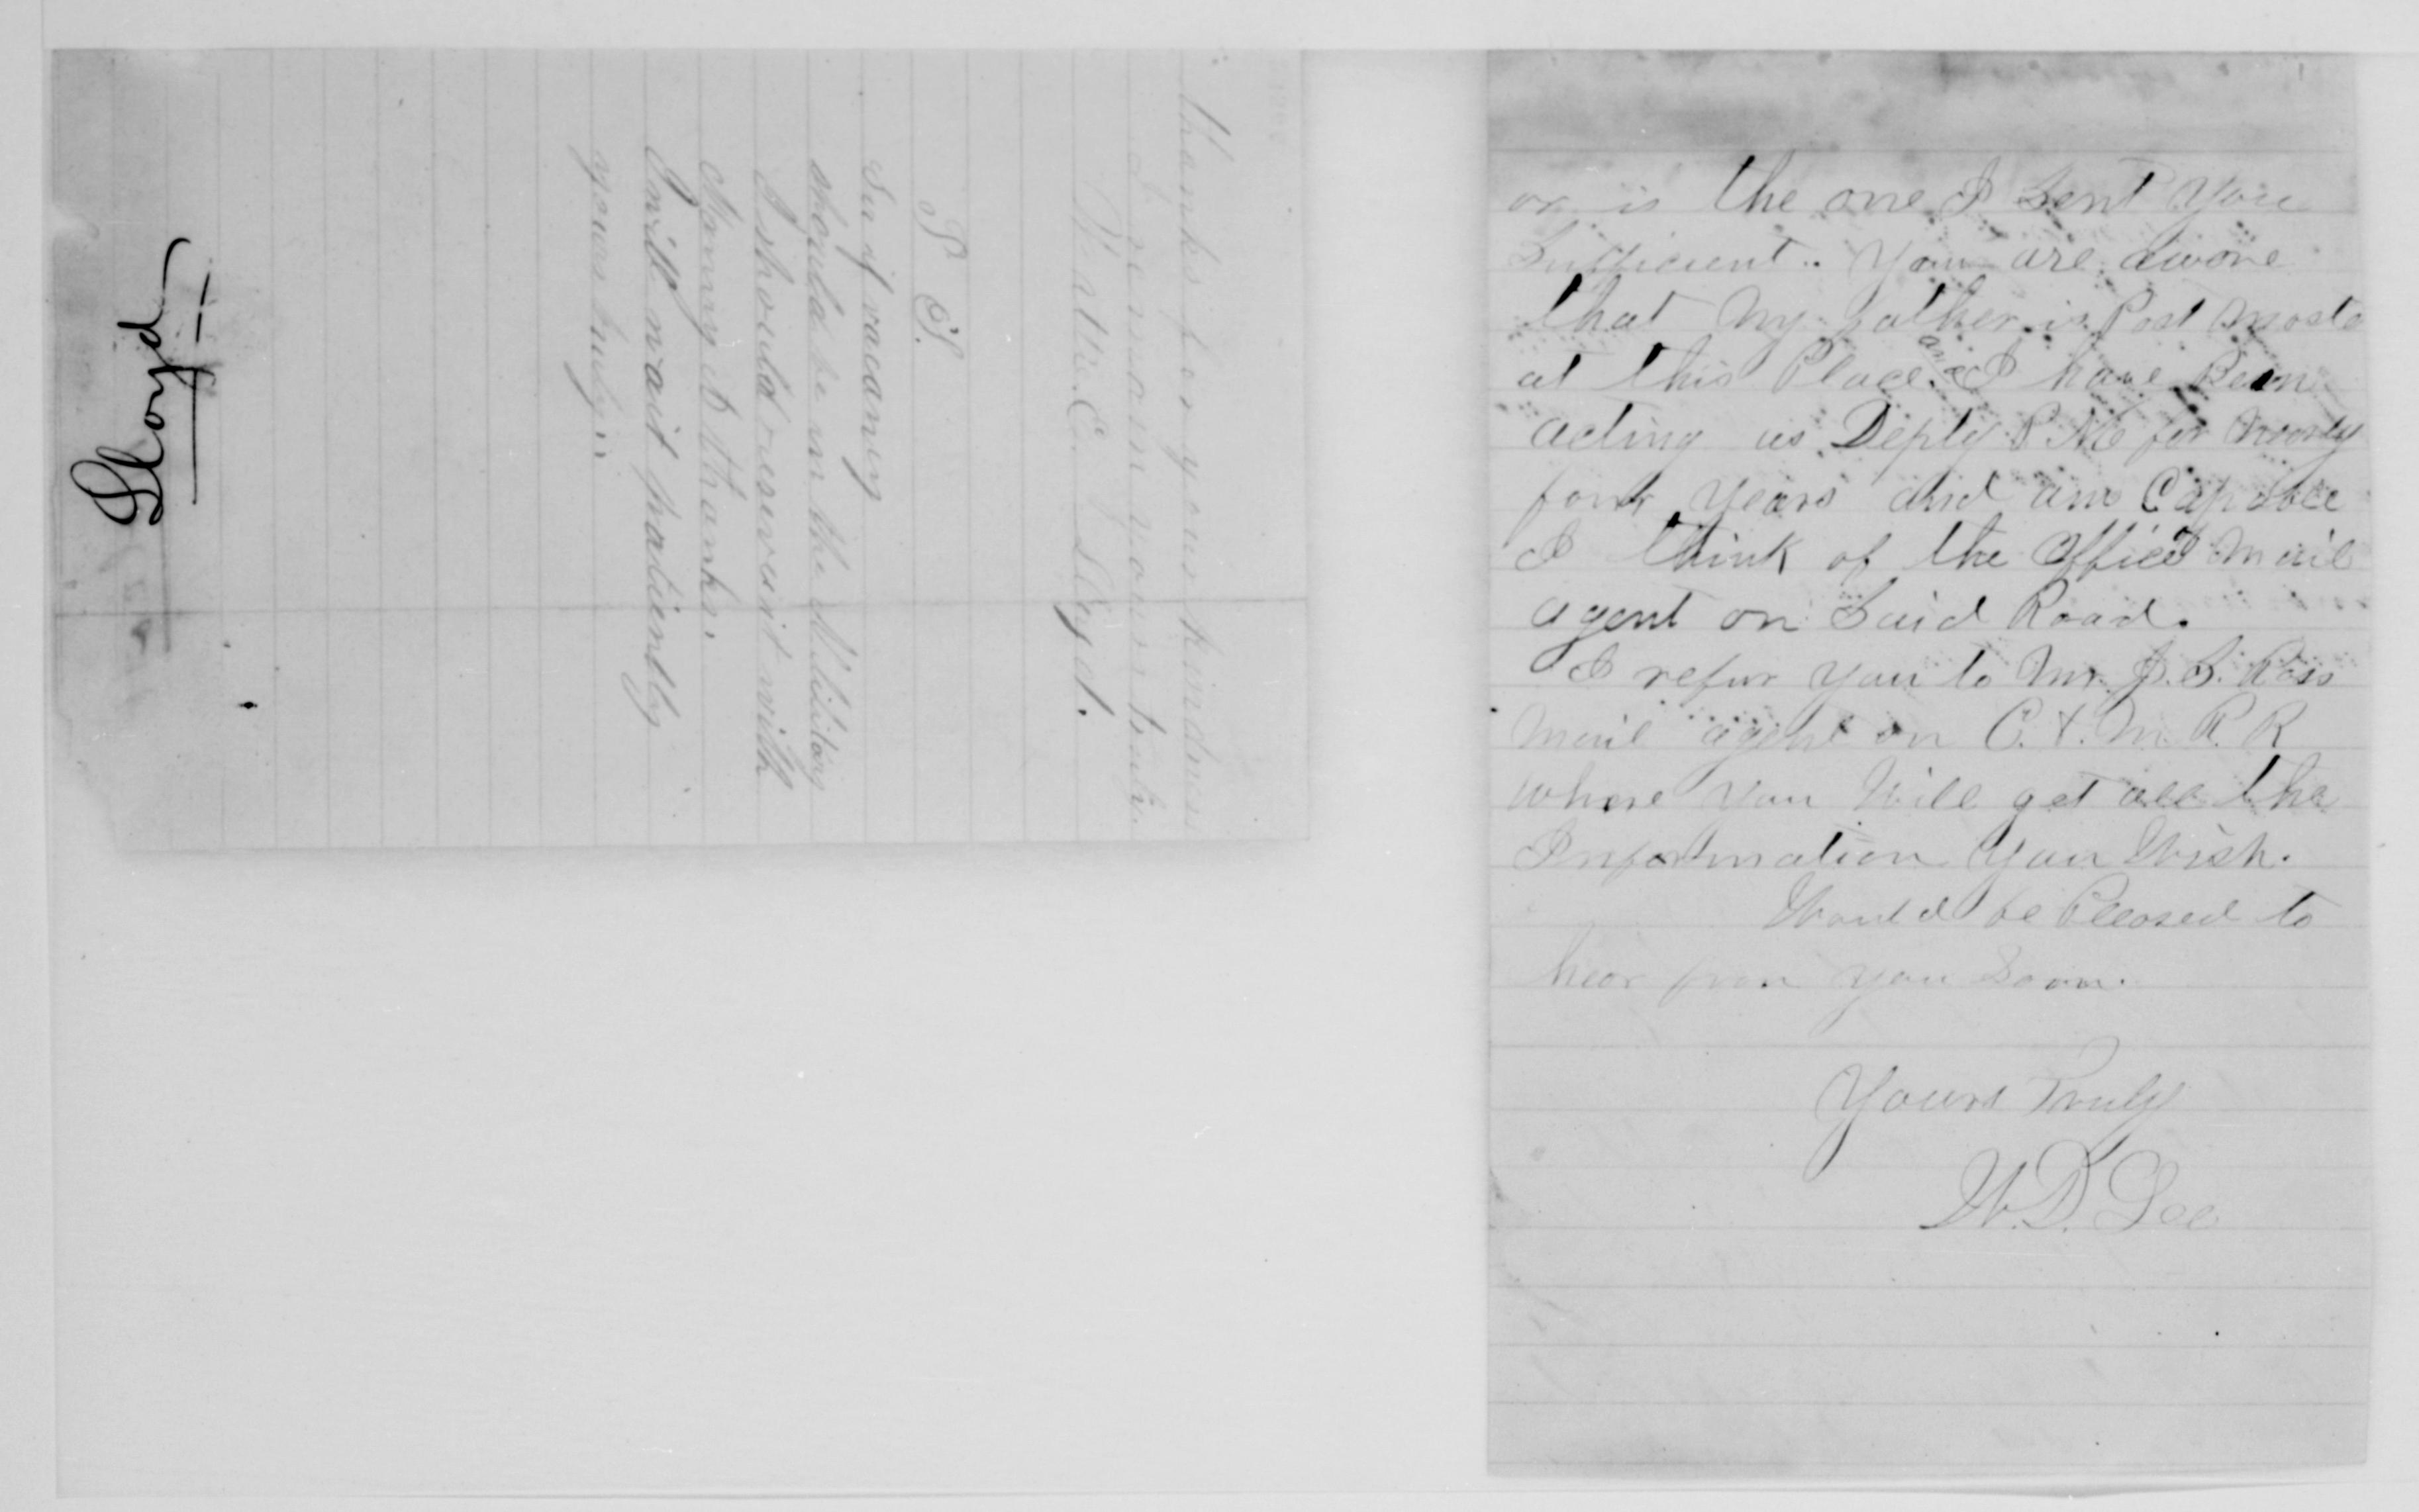 thanks for your kindness
I remain yours truly
E. Lloyd.
P. S.
Sir if vacancy
should be in the Military
I should receive it with
Many thanks.
I will wait patiently
yours truly
Lloyd
or is the one I Sent You
Sufficient. You are awore
that My father is Post Moste
at this Place. and I have Been
acting as Depty P M for Nearly
four Years and am Capable
I think of the Office of Mail
agent on Said Road.
I refur you to Mr. J. S. Ross
Mail agent on C. & M. R. R
where you Will get all the
Information You Wish.
Would be Pleased to
hear from you Soon.
Yours Truly
W. D. Lee